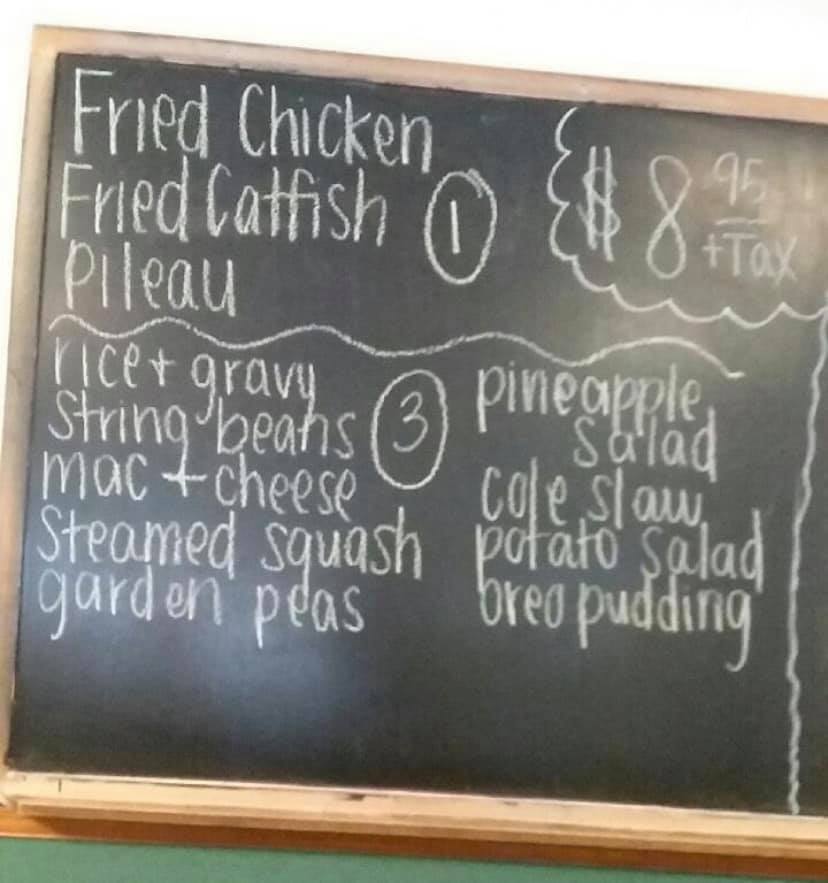 Fried Chicken
Fried Catfish
Pileau
1
$ 8 95
+Tax
rice + gravy
string beans
mac + cheese
Steamed squash
garden peas
3
pineapple
salad
cole slaw
potato salad
oreo pudding